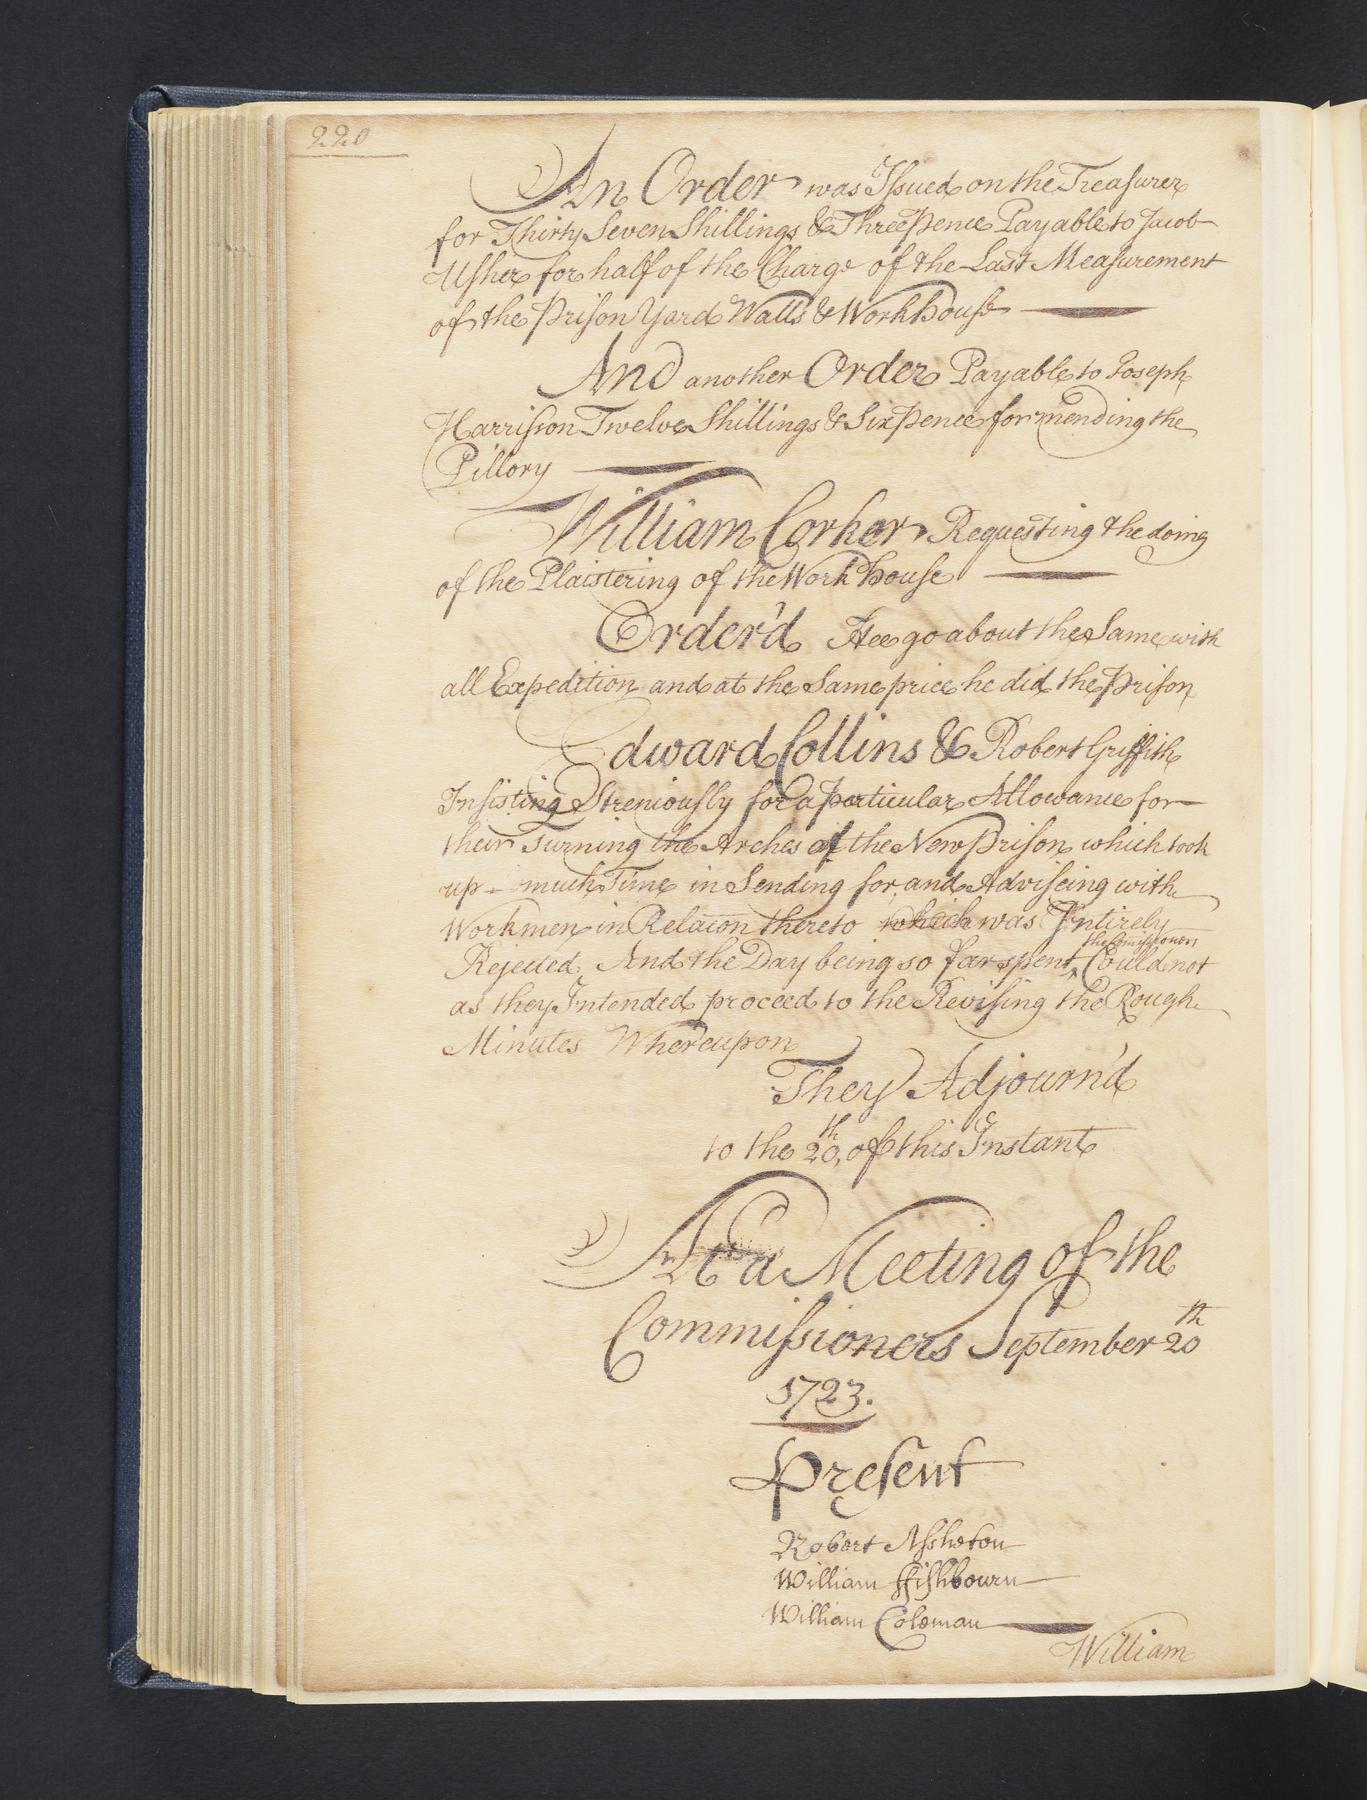 220
An Order was Issued on the Treasurer
for Thirty Seven Shillings & Three pence Payable to Jacob
Usher for half of the Charge of the Last Measurement
of the Prison Yard Walls & Work house
And another Order Payable to Joseph
Harrisson Twelve Shillings & Six Pence for mending the
Pillory
William Corker Requesting the doing
of the Plaistering of the Work house
Order'd Hee go about the Same with
all Expedition and at the Same price he did the Prison
Edward Collins & Robert Griffith
Insisting Streniously for a particular Allowance for
their Turning the Arches of the New Prison which took
up much Time in Sending for, and Adviseing with
Workmen in Relacon thereto which was Intirely
the Comissioners
Rejected And the Day being so far spent ^ Could not
as they Intended proceed to the Revising the Rough
Minutes Whereupon
They Adjourn'd
to the 20th, of this Instant
At a Meeting of the
Commissioners September 20th
1723.
Present
Robert Assheton
William ffishbourn
William Coleman
William